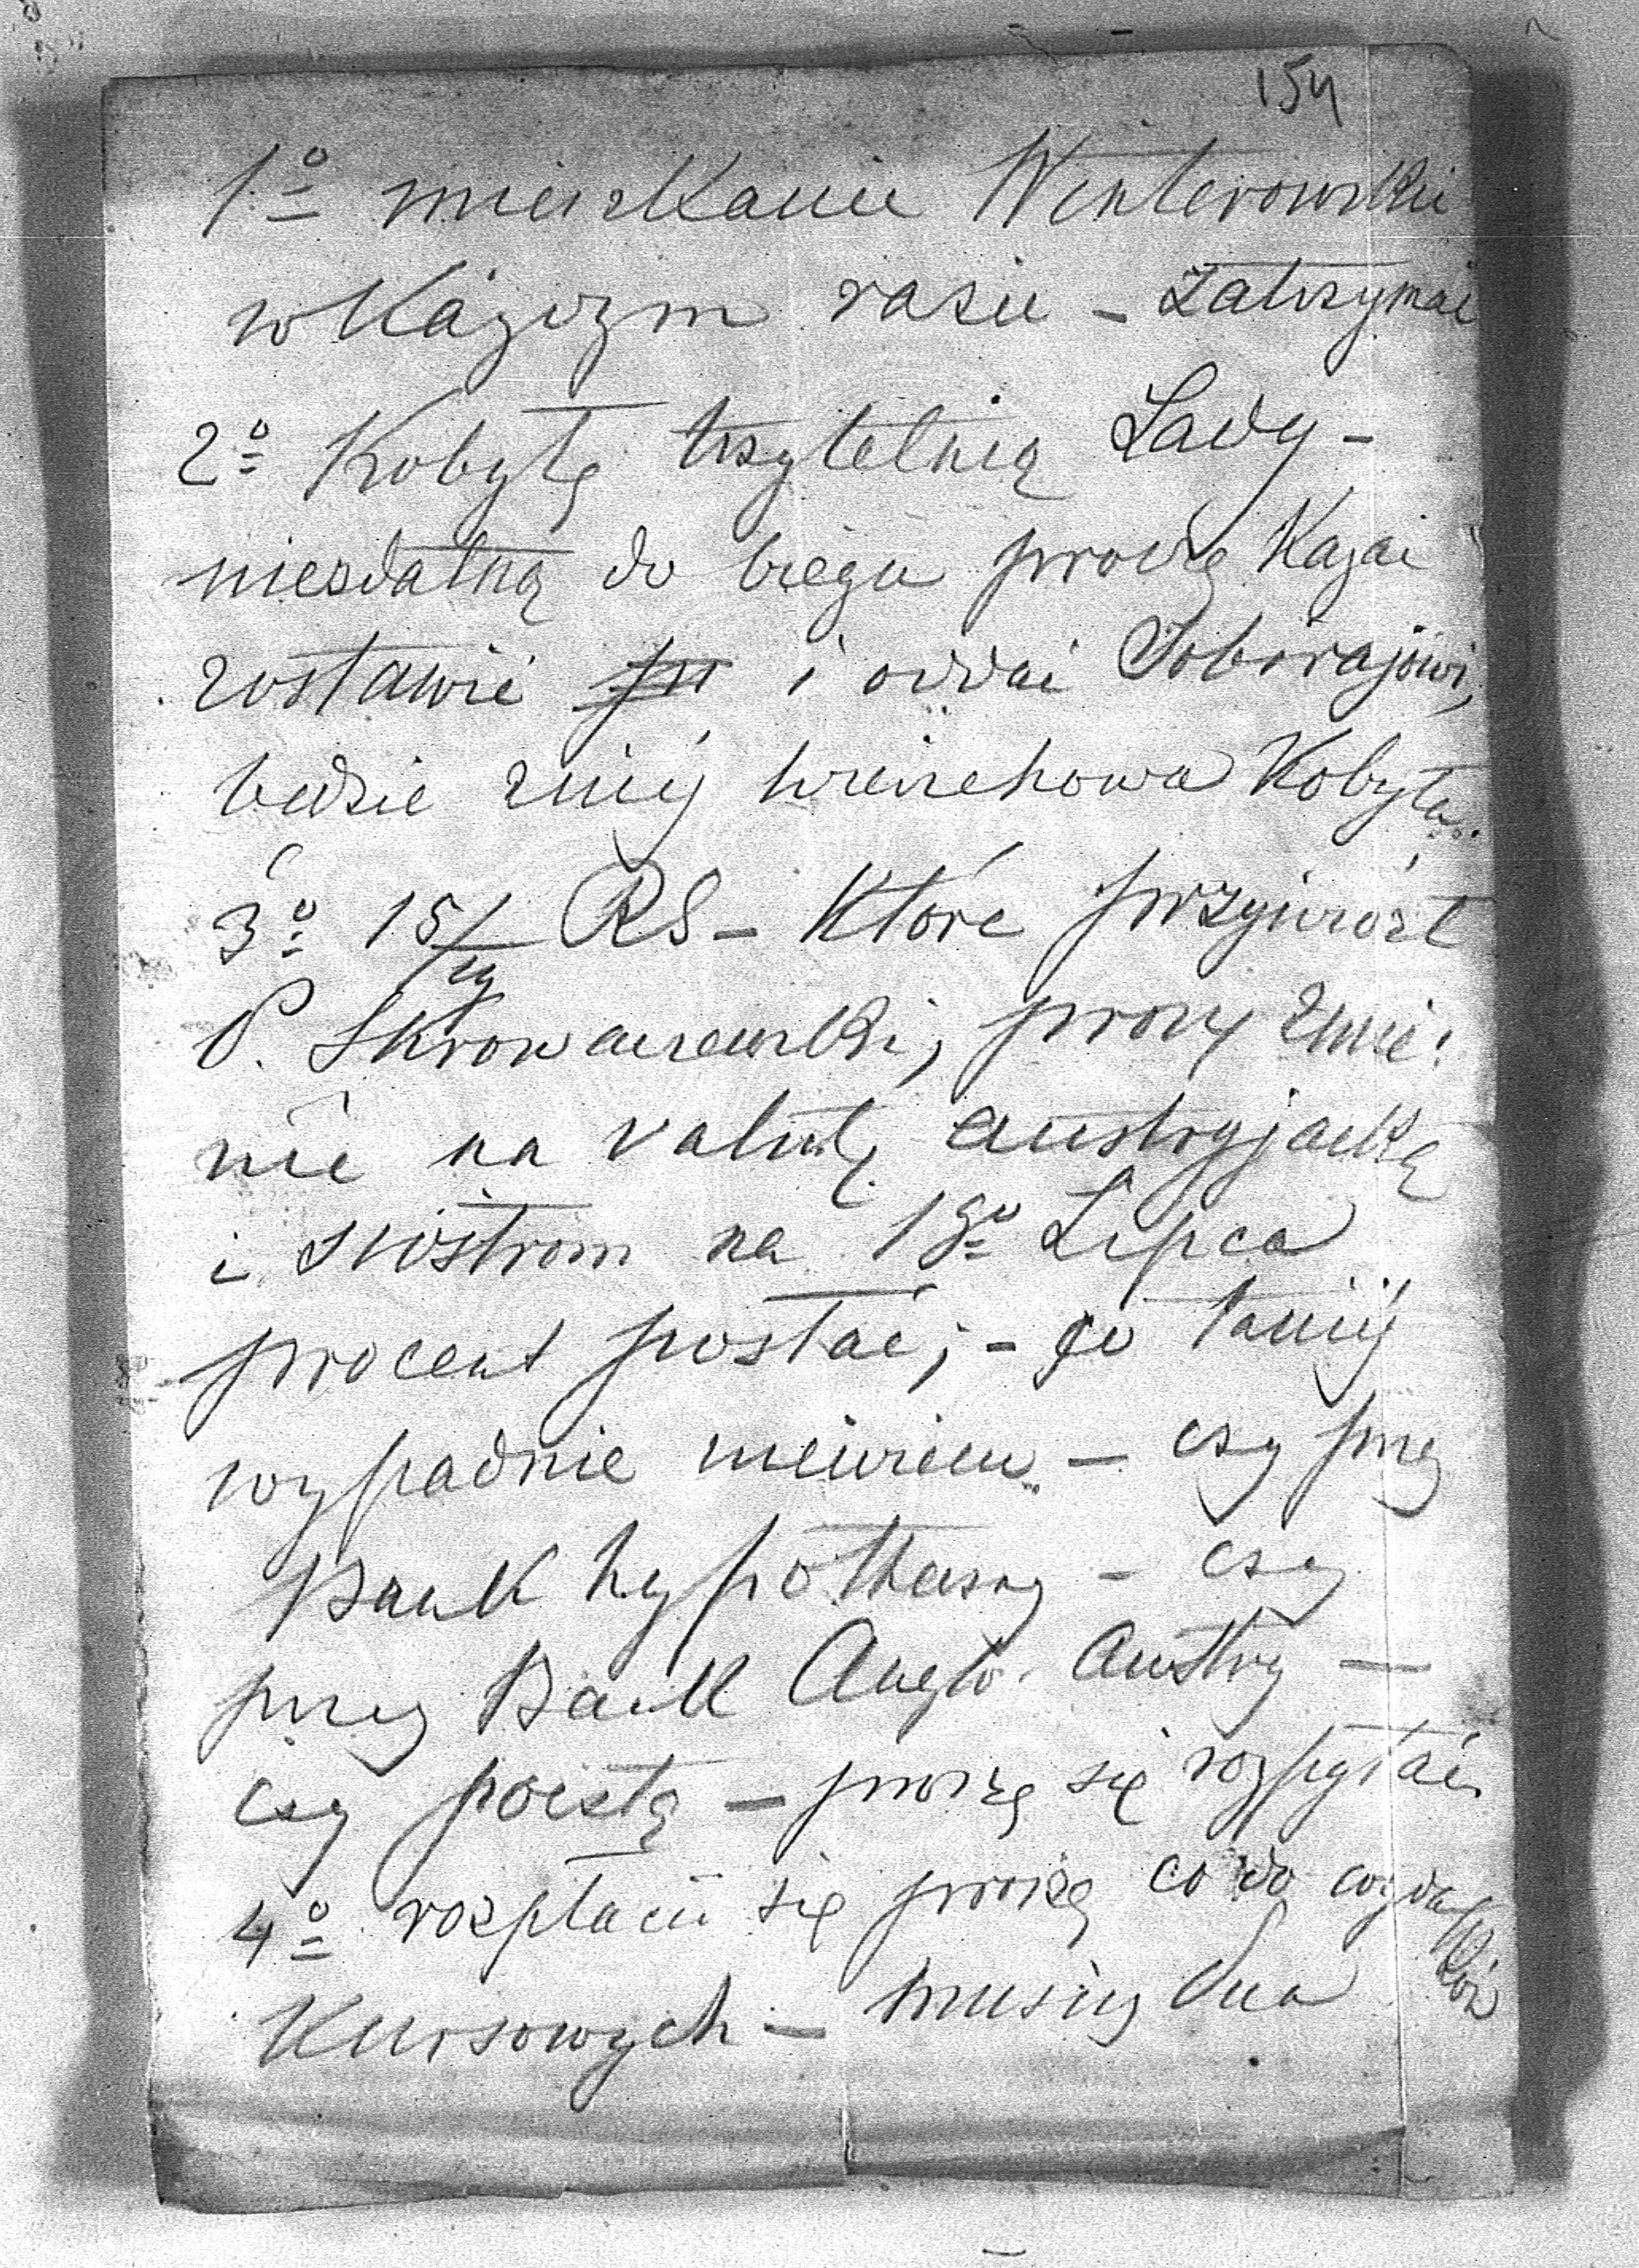 154
1o mieszkanie Wenterowskie
w Każdym razie - zatrzymać
2o Kobyłę trzyletnią Lady -
niezdatną do biegu proszę Kazać
zostawić i oddać Sobirajowi,
bedzie zniej wierzchowa Kobyła.
3o 15/ RS - Które przywiózł
P. Skrowaczewski, proszę zmie:
nić na valutę austryjacką
i siostrom na 1go Lipca
procent posłać; - co taniej
wypadnie niewiem - czy przez
Bank hypoteczny - czy
przez Bank Anglo. Austry -
czy pocztą - proszę się rozpytać.
4o rozpłacić się proszę co do
Kursowych - musiny dwa